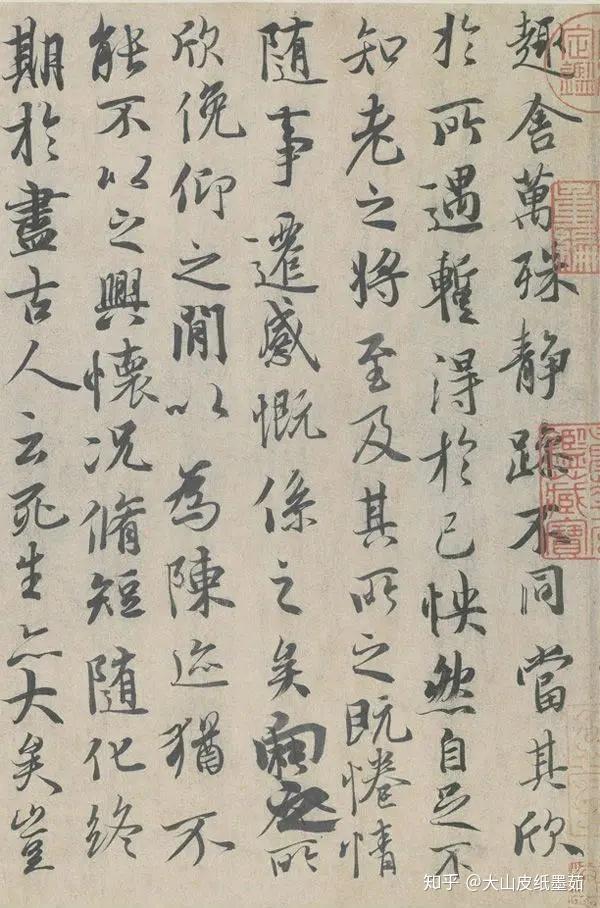 趣舍萬殊静躁不同當其欣
於所遇蹔得於己怏然自足不
知老之將至及其所之既惓情
随事遷感慨係之矣向之所
欣俛仰之閒以為陳迹猶不
能不以之興懷况脩短随化終
期於盡古人云死生亦大矣豈
知乎 @大山皮纸墨茹